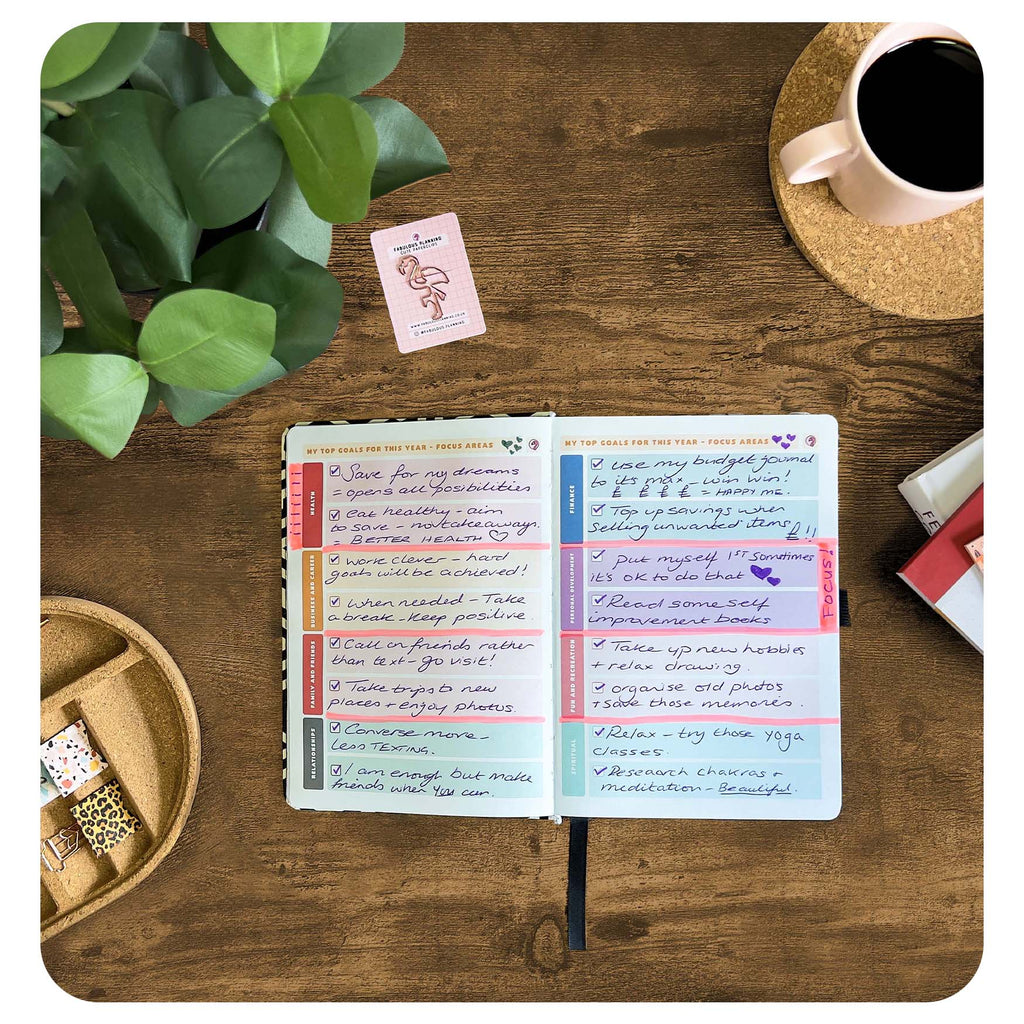 FABULOUS PLANNING
CUTE PAPERCLIPS
WWW.FABULOUSPLANNING.CO.UK
@FABULOUS.PLANNING
MY TOP GOALS FOR THIS YEAR - FOCUS AREAS
HEALTH
Save for my dreams
= opens all posibilities
eat healthy - aim
to save - not takeaways.
= BETTER HEALTH ♡
BUSINESS AND CAREER
work clever - hard
goals will be achieved!
when needed - Take
a break - keep positive.
FAMILY AND FRIENDS
Call on friends rather
than text - go visit!
Take trips to new
places + enjoy photos.
RELATIONSHIPS
Converse more -
less TEXTING.
I am enough but make
friends when you can.
MY TOP GOALS FOR THIS YEAR - FOCUS AREAS
FINANCE
use my budget journal
to its max - win win!
£ £ £ £ = HAPPY ME.
Top up savings when
selling unwanted items £!!
PERSONAL DEVELOPMENT
Put myself 1ST sometimes
it's ok to do that
Read some self
improvement books
FOCUS!
FUN AND RECREATION
Take up new hobbies
+ relax drawing.
organise old photos
+ save those memories.
SPIRITUAL
Relax - try those yoga
classes.
Research chakras +
meditation - Beautiful.
FE